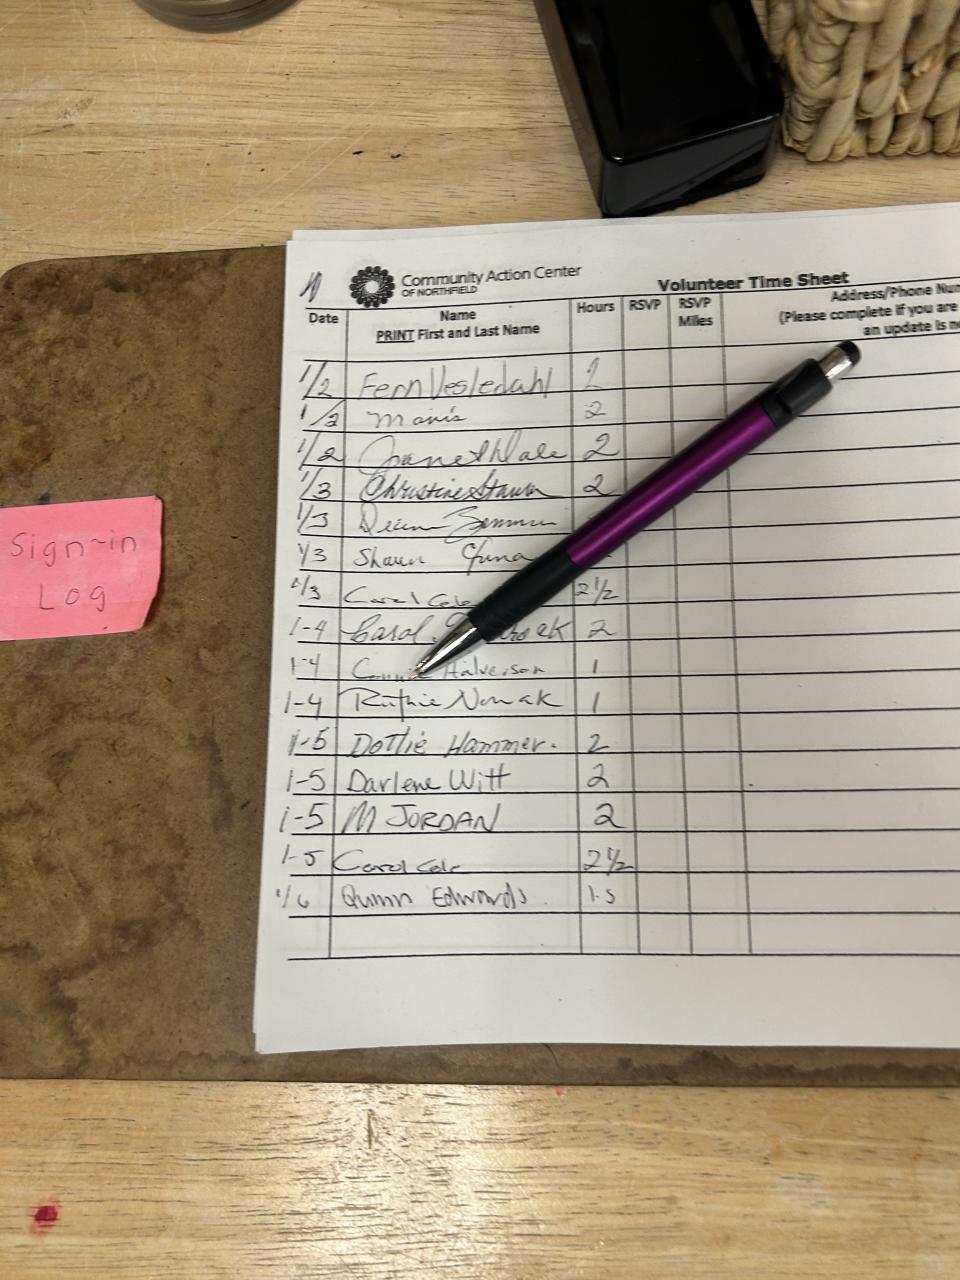 Community Action Center
OF NORTHFIELD
Volunteer Time Sheet
Date
Name
PRINT First and Last Name
Hours
RSVP
RSVP
Miles
Address/Phone
(Please complete if you are
an update is
1/2 Fern Vesledahl 2
1/2 Mavis 2
1/2 Janet Dale 2
1/3 Christine 2
1/3
1/3 Shawn
1/3 Carol Cole 2 1/2
1-4 Carol 2
1-4 Connie Halverson 1
1-4 Ruthie Nowak 1
1-5 Dottie Hammer. 2
1-5 Darlene Witt 2
1-5 M JORDAN 2
1-5 Carol Cole 2 1/2
1/6 Quinn Edwards 1.5
Sign-in
Log